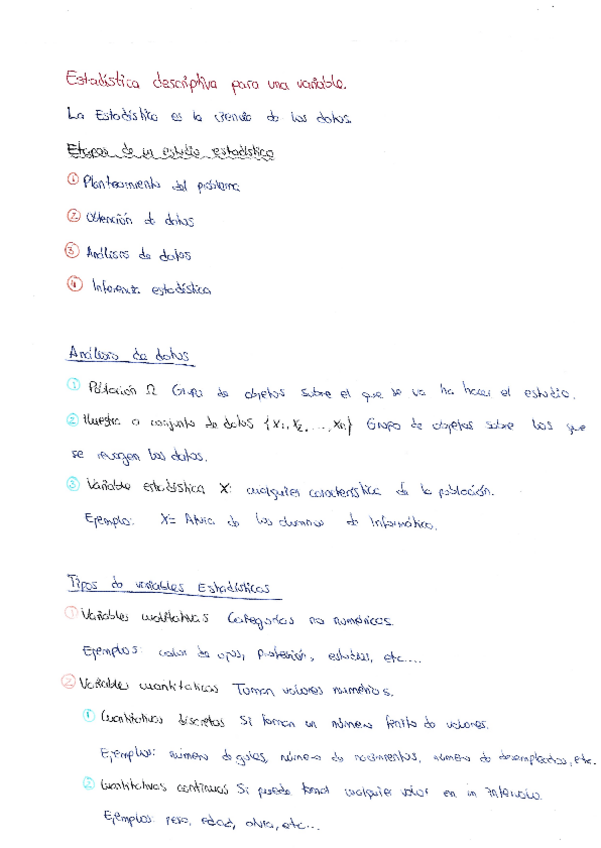 Estadística descriptiva para una variable.
La Estadística es la ciencia de los datos.
Etapas de un estudio estadístico
① Planteamiento del problema
② Obtención de datos
③ Análisis de datos
④ Inferencia estadística
Análisis de datos
① Población Ω Grupo de objetos sobre el que se va ha hacer el estudio.
② Muestra o conjunto de datos {x₁, x₂, ..., xₙ} Grupo de objetos sobre los que
se recogen los datos.
③ Variable estadística X: cualquier característica de la población.
Ejemplo: X= Altura de los alumnos de Informática.
Tipos de variables Estadísticas
① Variables cualitativas Categorías no numéricas.
Ejemplos: color de ojos, profesión, estudios, etc....
② Variables cuantitativas Toman valores numéricos.
① Cuantitativas discretas Si toman un número finito de valores.
Ejemplos: número de goles, número de nacimientos, número de desempleados, etc.
② Cuantitativas continuas Si puede tomar cualquier valor en un intervalo.
Ejemplos: peso, edad, altura, etc...